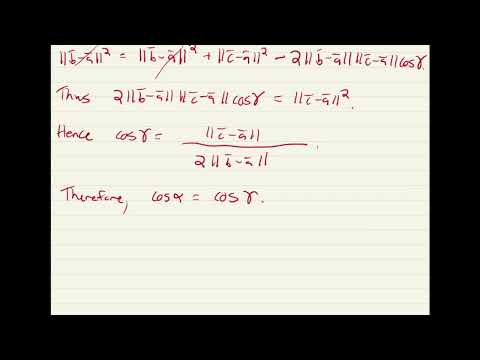 ||b̄-ā||² = ||b̄-ā||² + ||c̄-ā||² - 2||b̄-ā|| ||c̄-ā|| cosγ.
Thus 2||b̄-ā|| ||c̄-ā|| cosγ = ||c̄-ā||².
Hence cosγ = ||c̄-ā|| / 2||b̄-ā|| .
Therefore, cosα = cosγ.